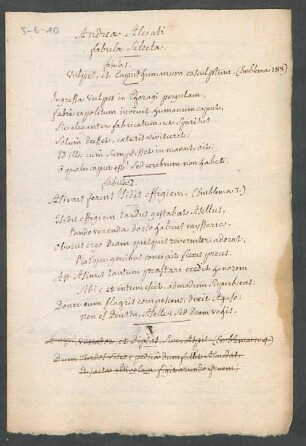 5-6-10
Andreæ Alciati
fabulæ Selectæ.
fabula 1.
Vulpes, et Caput humanum exsculptum. (Emblema 189.)
Ingressa Vulpes in Choragi pergulam,
fabrè expolitum invenit humanum caput,
Sic eleganter fabricatum, ut Spiritus
Solùm deesset, cæteris viveret.
Id illa cum Sumpsisset in manus, ait:
ô quale caput est! Sed cerebrum non habet.
fabula 2.
Asinus ferens Isidis effigiem. (Emblema 7.)
Isidis effigiem tardus gestabat Asellus,
Pando verenda dorso habens mysteria.
Obvius ergo Deam quisquis reverenter adorat,
Piasque genibus concipit flexis preces.
Ast Asinus tantum præstari credit honorem
Sibi; et intumescit, admodum Superbiens:
Donec eum flagris compescens, dixit Agaso:
non es Deus tu, Aselle; Sed Deam vehis.
auceps, et
Dum turdos visco, pedicâ dum fallit Alaudas,
Et jacta altivolam figit arundo gruem;